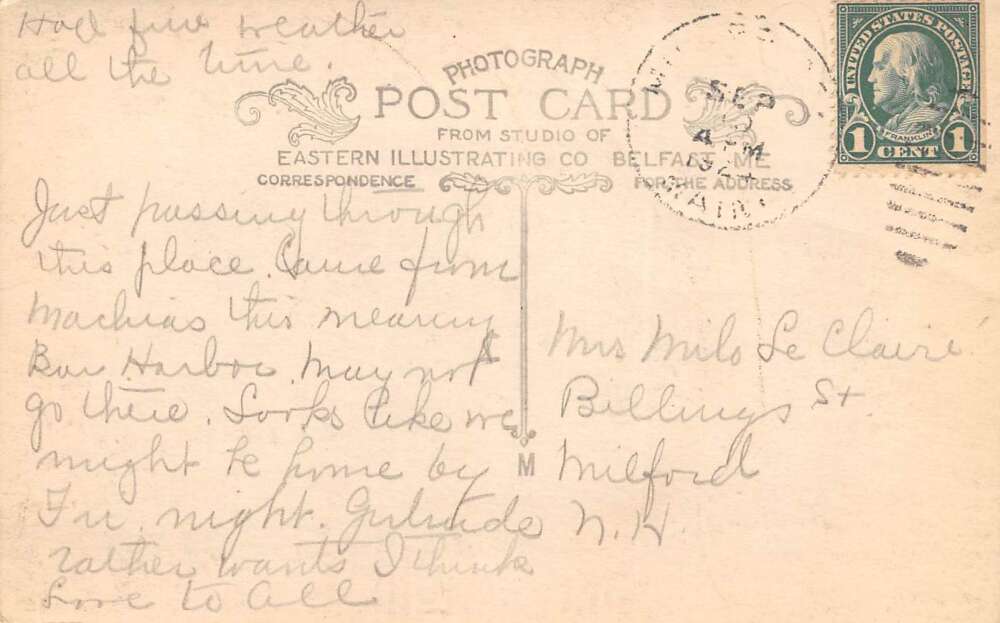 Had fine weather
all the time.
PHOTOGRAPH
POST CARD
FROM STUDIO OF
EASTERN ILLUSTRATING CO BELFAST, ME
CORRESPONDENCE
FOR THE ADDRESS
SEP
AM
1924
MAINE
UNITED STATES POSTAGE
FRANKLIN
1 CENT 1
Just passing through
this place. Came from
Machias this
Bar Harbor. May not
go there. Looks like we
might be home by
Fri. night. Gertrude
rather wants I think
Love to all
Mrs Milo Le Claire
Billings St.
M Milford
N.H.